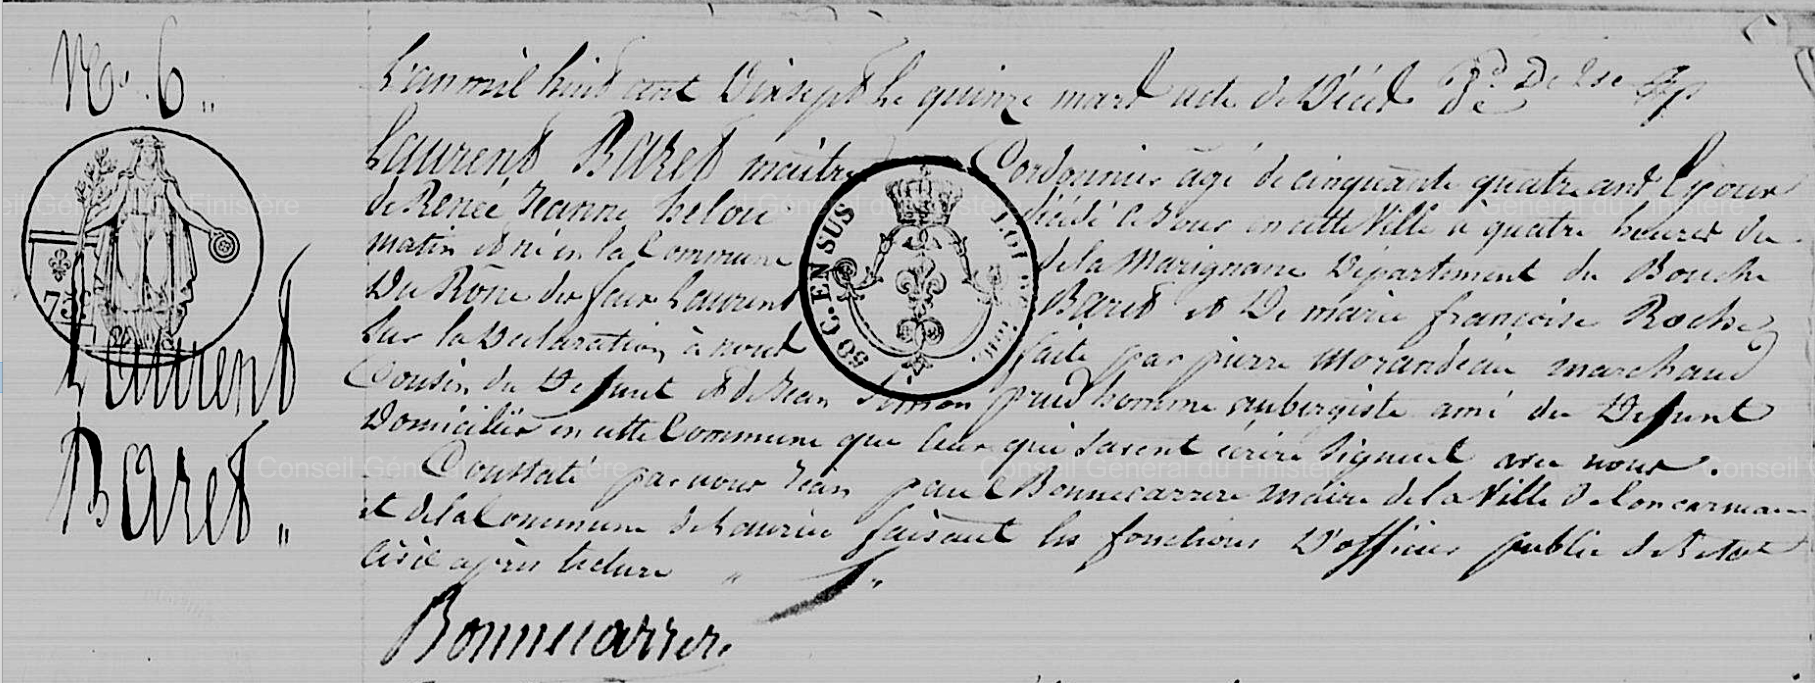 No. 6 "
L'an mil huit cent Dixsept le quinze mars acte de Décés
Laurent Baret maitre Cordonnier agé de cinquante quatre ans Epoux
de Renée Jeanne helou décédé ce jour en cette Ville à quatre heures du
matin et né en la Commune de la Marignane Département du Bouche
Du Rône de feux Laurent Baret et De marie françoise Roche
Sur la Declaration à nous faite par pierre Morandeau marchand
Cousin du Defunt et de Jean Simon prud'homme aubergiste ami du Defunt
Domiciliés en cette Commune que leur qui savent écrire signent avec nous.
Constaté par nous Jean paul Bonnecarrere maire de la Ville de Concarneau
et de la Commune de Lanriec faisant les fonctions D'officier public de l'etat
civil après lecture
Bonnecarrere
Laurent
Baret "
50 C. EN SUS
Conseil Général du Finistère